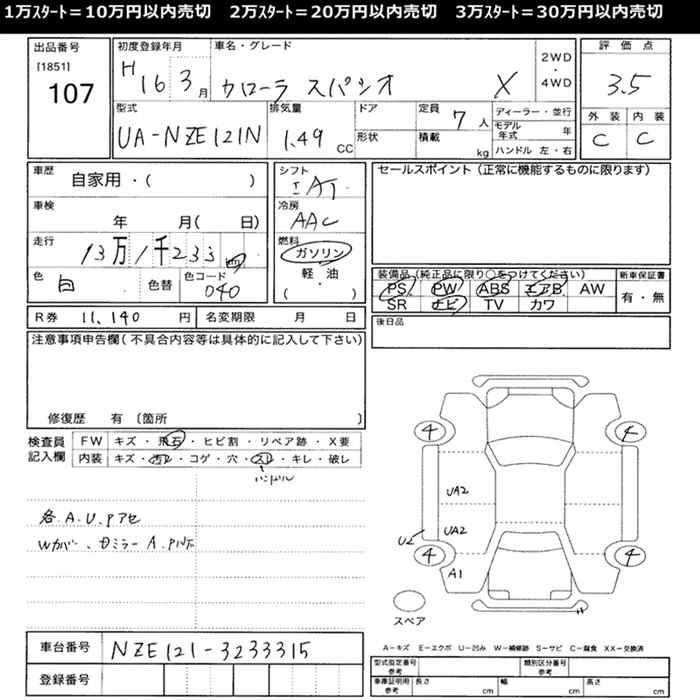 1万スタート＝10万円以内売切　2万スタート＝20万円以内売切　3万スタート＝30万円以内売切
出品番号 初度登録年月 車名・グレード 2WD・4WD 評価点
[1851] 107 H16 3月 カローラ スパシオ X 3.5
型式 排気量 ドア 定員 7人 ディーラー・並行 外装 内装
UA-NZE121N 1.49 CC 形状 積載 kg モデル年式 年 C C
ハンドル 左・右
車歴 自家用・( ) シフト IAT セールスポイント（正常に機能するものに限ります）
車検 年 月( 日) 冷房 AAC
走行 13万1千233 燃料 ガソリン・軽・油
色 白 色替 色コード 040 ( )
装備品（純正品に限り○をつけてください） 新車保証書
PS PW ABS エアB AW 有・無
SR ナビ TV カワ
R券 11,140 円 名変期限 月 日 後日品
注意事項申告欄（不具合内容等は具体的に記入して下さい）
修復歴 有 〔箇所 〕
検査員記入欄 FW キズ・飛石・ヒビ割・リペア跡・X要
内装 キズ・汚レ・コゲ・穴・スレ・キレ・破レ
ハンドル
各.A.U.Pアセ
Wカバー、
4 4
UA2
UA2
U2
4 4
A1
スペア
車台番号 NZE121-3233315
登録番号
A－キズ E－エクボ U－凹み W－補修跡 S－サビ C－腐食 XX－交換済
型式指定番号 参考 類別区分番号 参考
車庫証明用 参考 長さ cm 幅 cm 高さ cm